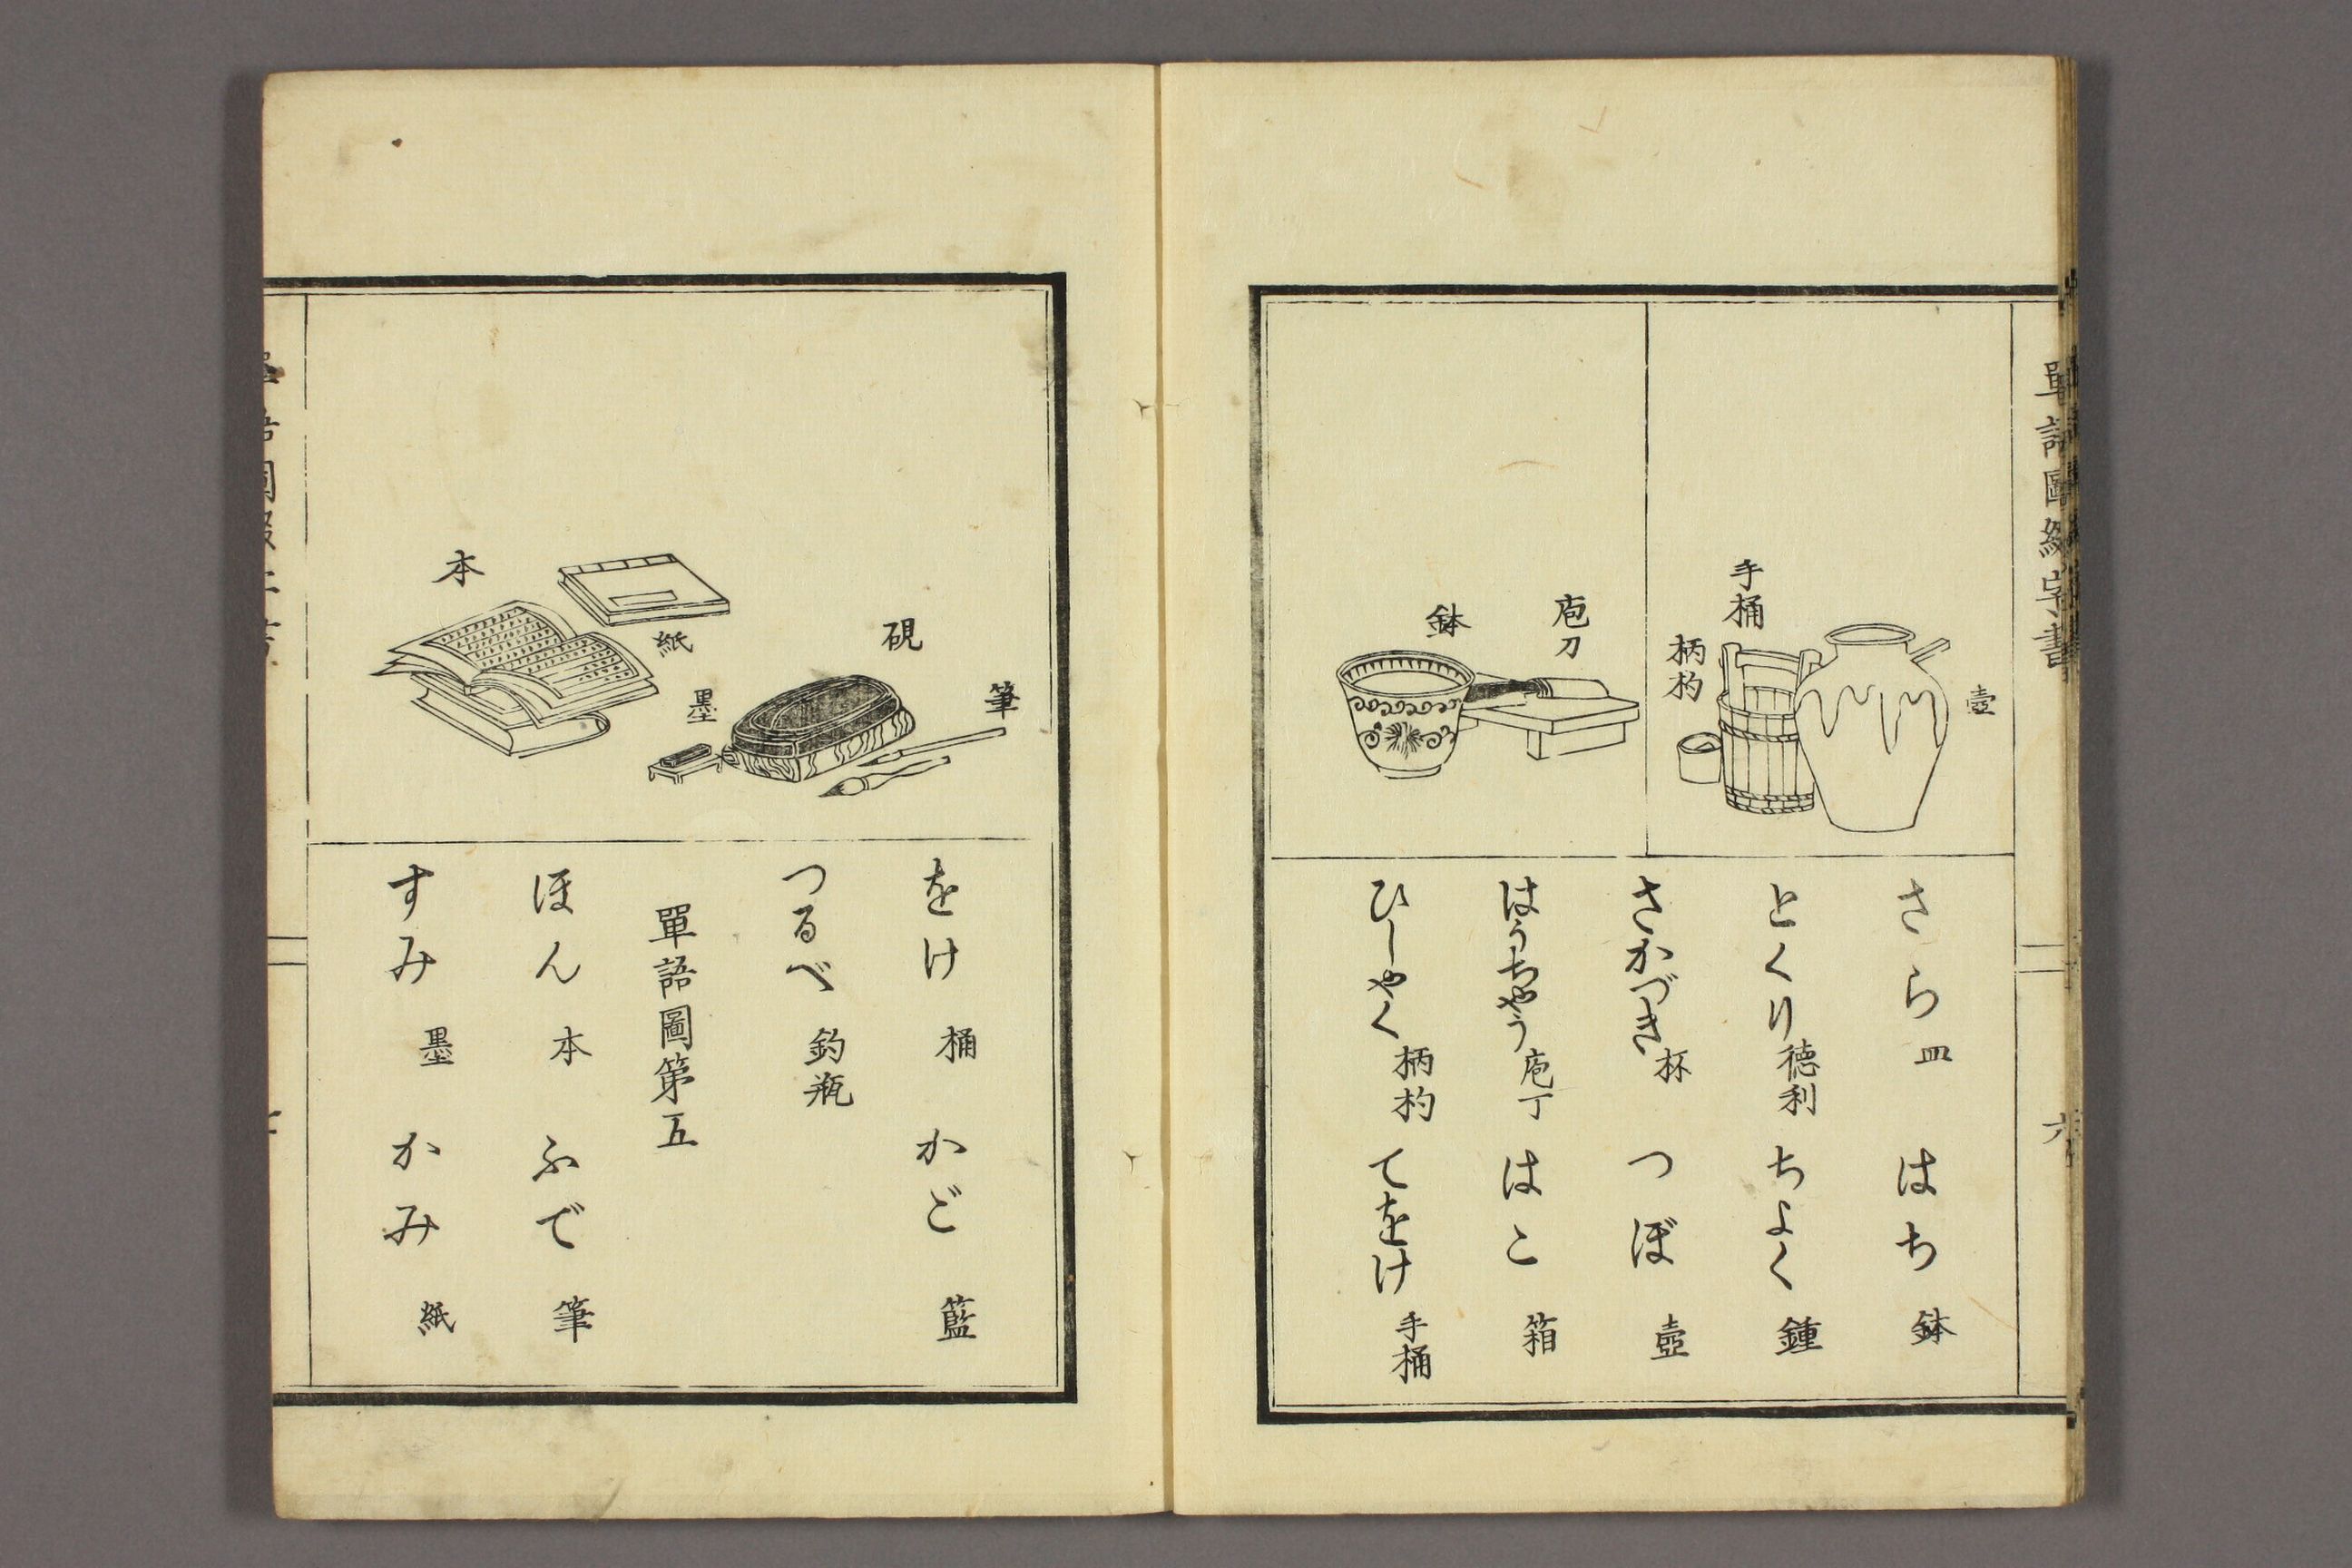 單語圖綴字書
六
壺
手桶
柄杓
庖刀
鉢
さら 皿 はち 鉢
とくり 徳利 ちよく 鍾
さかづき 杯 つぼ 壺
はうちやう 庖丁 はこ 箱
ひしやく 柄杓 てをけ 手桶
筆
硯
墨
紙
本
をけ 桶 かご 籃
つるべ 釣瓶
單語圖第五
ほん 本 ふで 筆
すみ 墨 かみ 紙